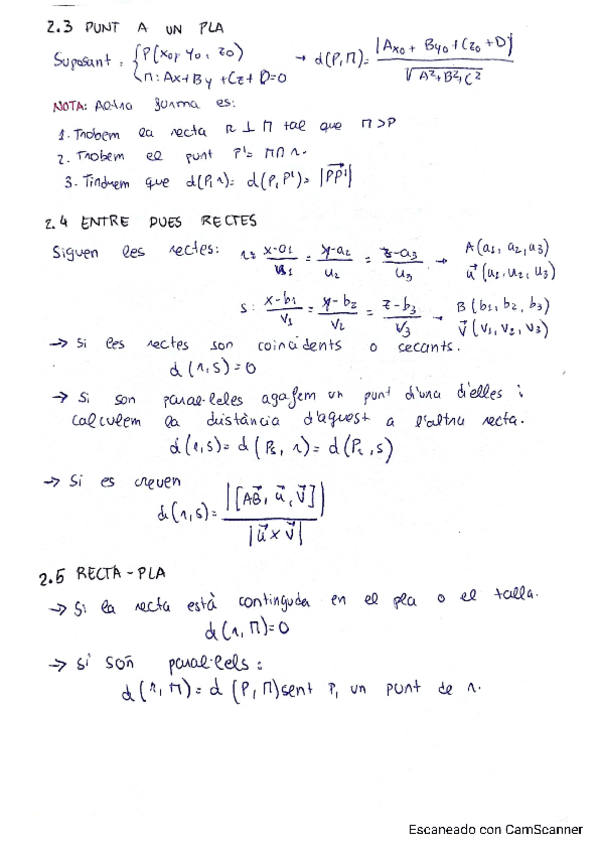 2.3 PUNT A UN PLA
Suposant: { P(x0, y0, z0) π: Ax+By+Cz+D=0 → d(P,π)= |Ax0 + By0 + Cz0 + D| / √A²+B²+C²
NOTA: Altra forma és:
1. Trobem la recta r ⊥ π tal que r > P
2. Trobem el punt P'= π∩r.
3. Tindrem que d(P,r)= d(P,P')= |PP'|
2.4 ENTRE DUES RECTES
Siguen les rectes: r: x-a1/u1 = y-a2/u2 = z-a3/u3 → A(a1, a2, a3) u(u1, u2, u3)
s: x-b1/v1 = y-b2/v2 = z-b3/v3 → B(b1, b2, b3) v(v1, v2, v3)
→ Si les rectes son coincidents o secants.
d(r,s)=0
→ Si son paral·leles agafem un punt d'una d'elles i
calculem la distància d'aquest a l'altra recta.
d(r,s)= d(Ps, r)= d(Pr, s)
→ Si es creuen
d(r,s)= |[AB, u, v]| / |u x v|
2.5 RECTA-PLA
→ Si la recta està continguda en el pla o el talla.
d(r,π)=0
→ Si són paral·lels:
d(r,π)= d(P,π) sent P, un punt de r.
Escaneado con CamScanner